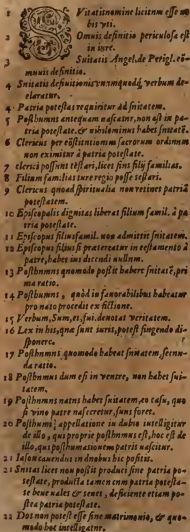 1 Vitatis nomine licitum esse no
bis vti.
2 Omnis definitio periculosa est
in iure.
3 Suitatis Angel. de Perigl. cõ-
munis definitio.
4 Suitatis definitionis vnumquodq́; verbum de-
claratur.
4 Patria potestas requiritur ad suitatem.
5 Posthumus antequam nascatur, non est in pa-
tria potestate, & nihilominus habet suitatẽ.
6 Clericus per existentiam sacrorum ordinum
non eximitur à patria potestate.
7 clerici possunt testari, licet sint filij familias.
8 Filium familias iure regio posse testari.
9 Clericus quoad spiritualia non retinet patriã
potestatem.
10 Episcopalis dignitas liberat filium famil. à pa
tria potestate.
11 Episcopus filiusfamil. non admittit suitatem.
12 Episcopus filius si præteratur in testamento à
patre, habet ius dicendi nullum.
13 Posthumus quomodo possit habere suitatẽ, pri
ma ratio.
14 Posthumus, quòd in fauorabilibus habeatur
pro nato procedit ex fictione.
15 Verbum, Sum, es, fui, denotat veritatem.
16 Lex in his, quæ sunt iuris, potest fingendo di-
sponere.
17 Posthumus quomodo habeat suitatem, secun-
da ratio.
18 Posthumus dum est in ventre, non habet sui-
tatem.
19 Posthumus natus habet suitatem, eo casu, quo
si viuo patre nasceretur, suus foret.
20 Posthumi appellatione in dubio intelligitur
de illo, qui proprie posthumus est, hoc est de
illo, qui post humationem patris nascitur.
21 Iason caredis in duobus hic positis.
21 Suitas licet non possit produci sine patria po-
testate, producta tamen cum patria potesta-
te bene valet & tenet, deficiente etiam po-
stea patria potestate.
22 Dos non potest esse sine matrimonio, & quo-
modo hoc intelligatur.